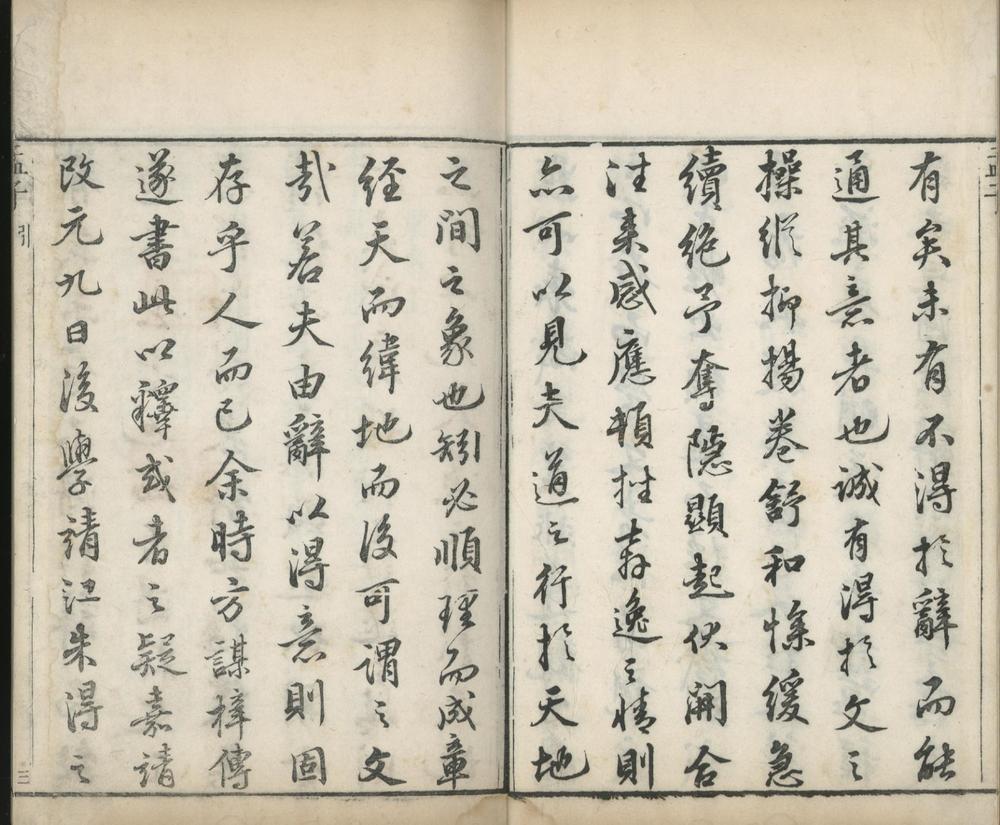 有矣未有不得於辭而能
通其意者也誠有得於文之
操縱抑揚卷舒和慘緩急
續絶予奪隱顯起伏開合
往来感應頓挫奔逸之情則
亦可以見夫道之行於天地
之間之象也矧必順理而成章
经天而緯地而後可謂之文
哉若夫由辭以得意則固
存乎人而已余時方謀梓傳
遂書此以釋或者之疑嘉靖
改元九日後學靖江朱得之
孟子 引
三